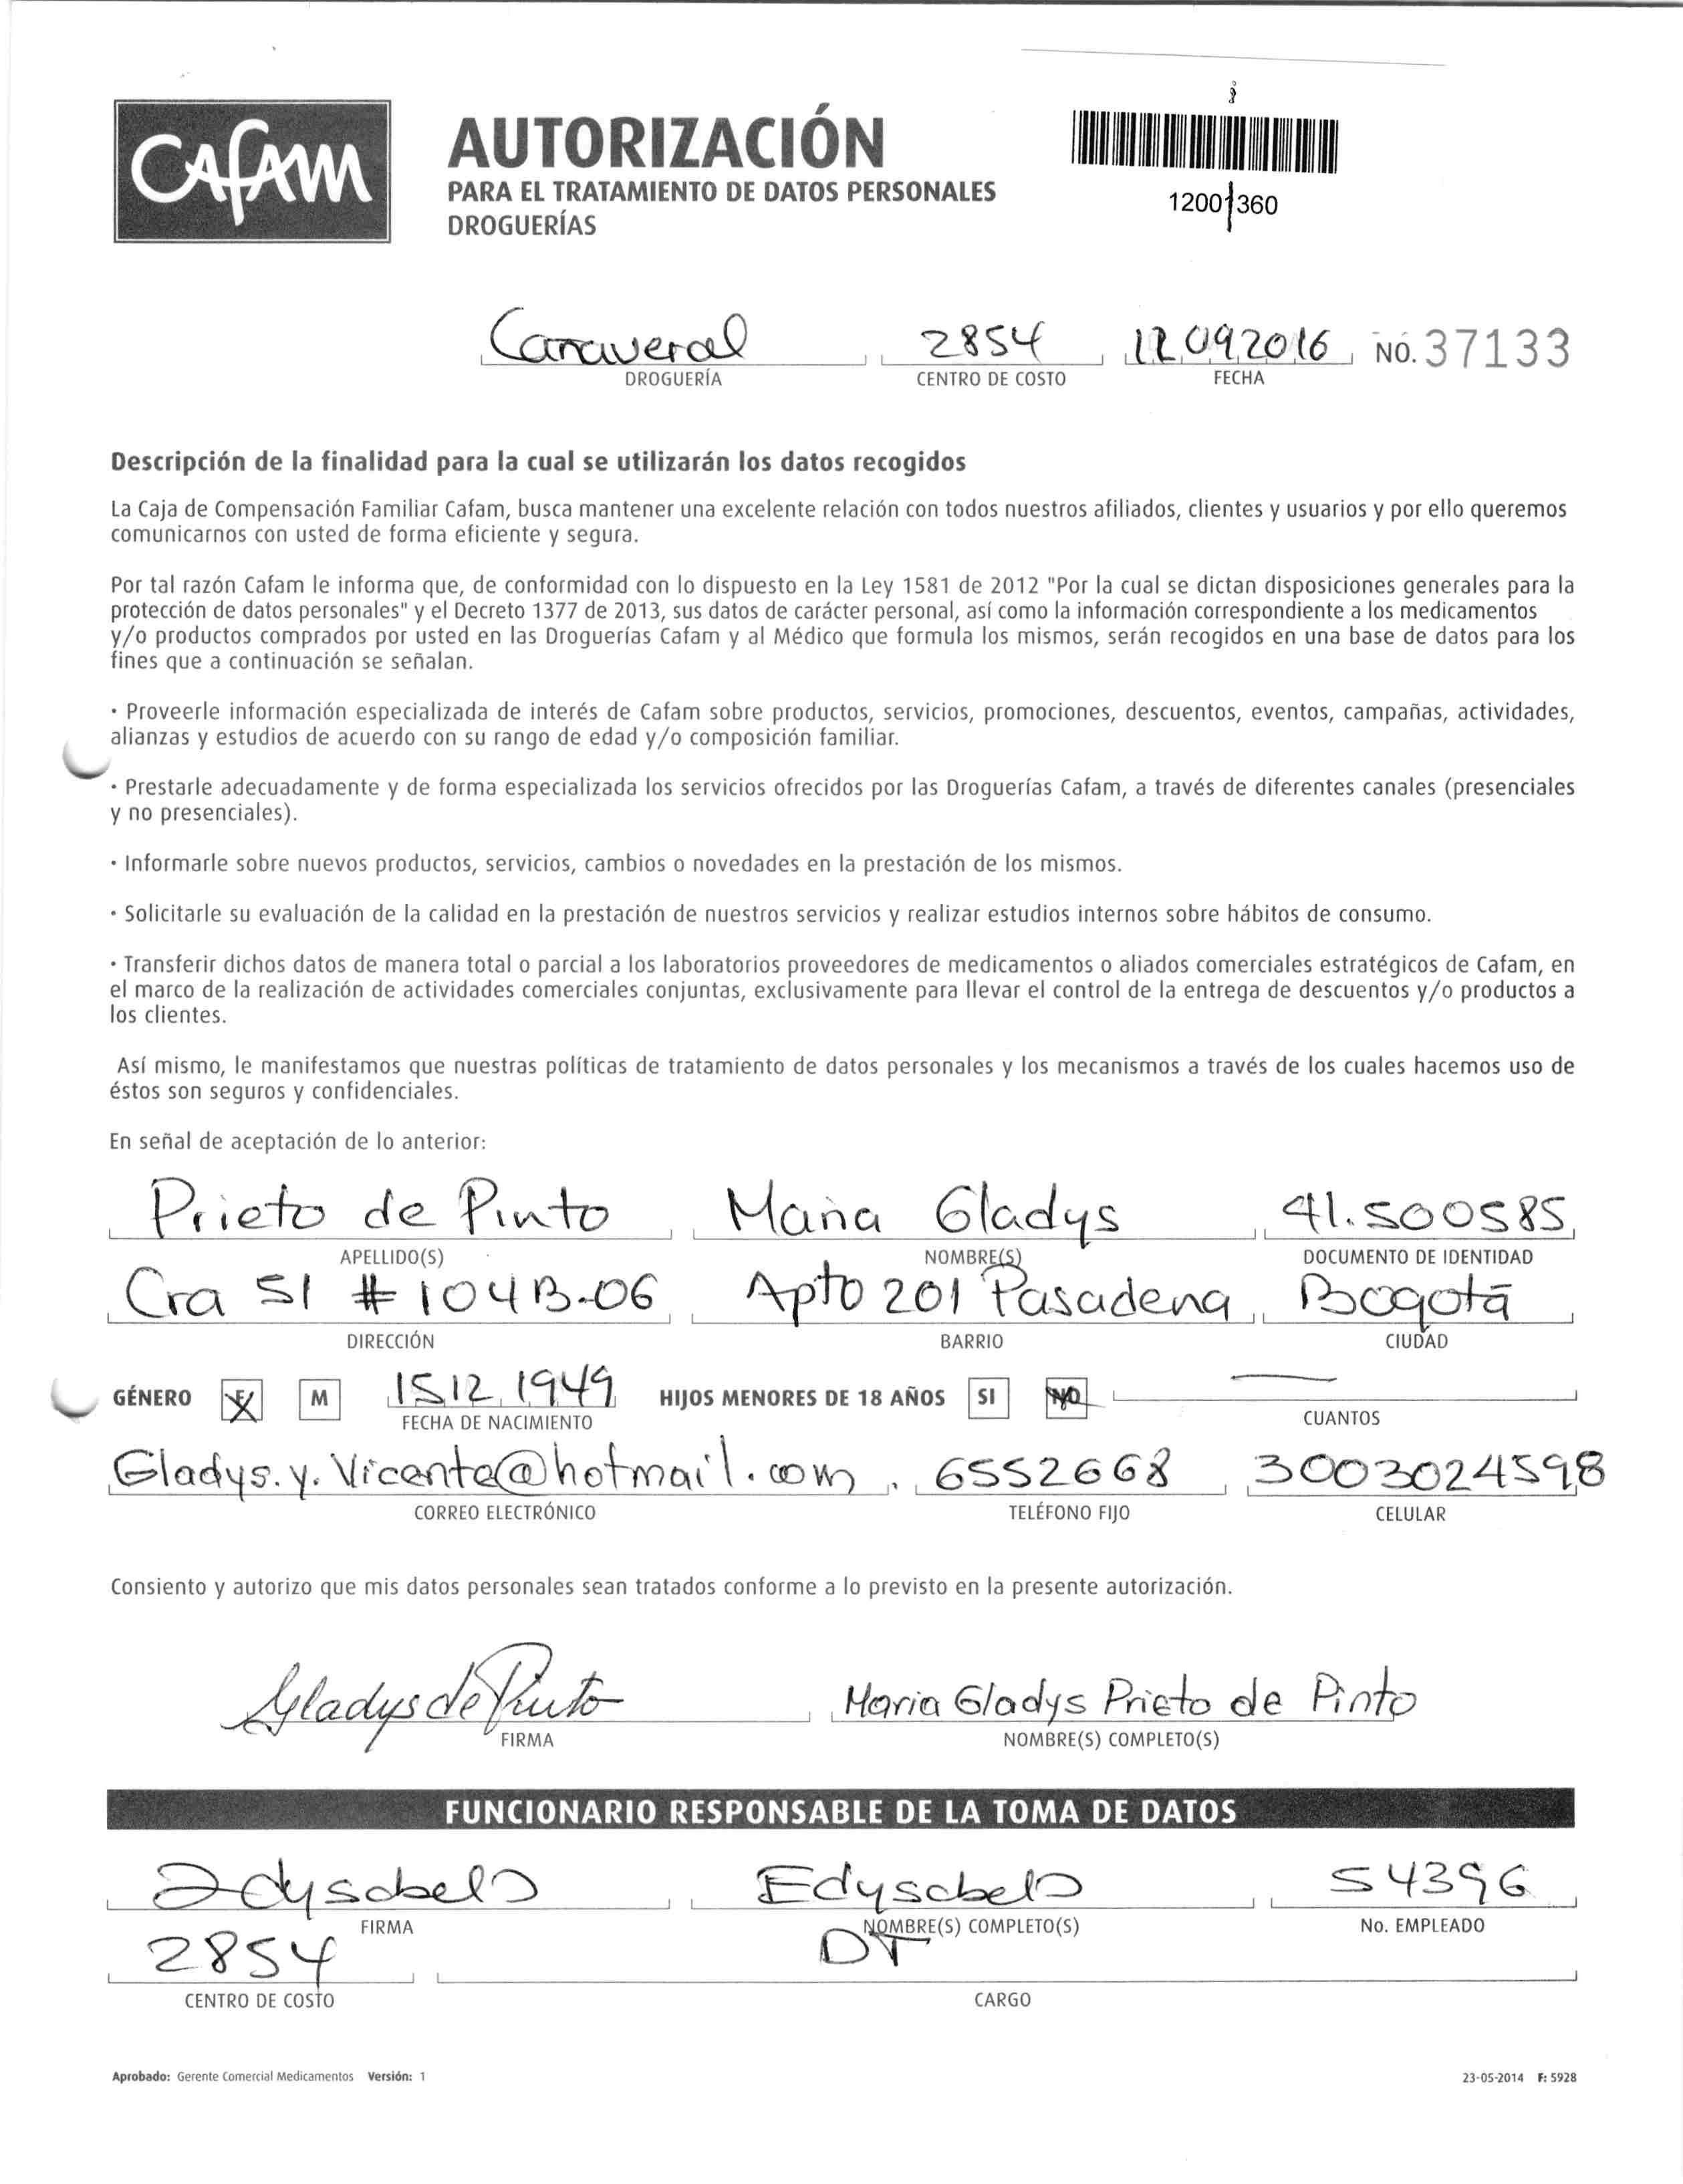 Cafam
AUTORIZACIÓN
PARA EL TRATAMIENTO DE DATOS PERSONALES
DROGUERÍAS
12001360
Canaveral 2854 12 09 2016 NO. 37133
DROGUERÍA CENTRO DE COSTO FECHA
Descripción de la finalidad para la cual se utilizarán los datos recogidos
La Caja de Compensación Familiar Cafam, busca mantener una excelente relación con todos nuestros afiliados, clientes y usuarios y por ello queremos
comunicarnos con usted de forma eficiente y segura.
Por tal razón Cafam le informa que, de conformidad con lo dispuesto en la Ley 1581 de 2012 "Por la cual se dictan disposiciones generales para la
protección de datos personales" y el Decreto 1377 de 2013, sus datos de carácter personal, así como la información correspondiente a los medicamentos
y/o productos comprados por usted en las Droguerías Cafam y al Médico que formula los mismos, serán recogidos en una base de datos para los
fines que a continuación se señalan.
· Proveerle información especializada de interés de Cafam sobre productos, servicios, promociones, descuentos, eventos, campañas, actividades,
alianzas y estudios de acuerdo con su rango de edad y/o composición familiar.
· Prestarle adecuadamente y de forma especializada los servicios ofrecidos por las Droguerías Cafam, a través de diferentes canales (presenciales
y no presenciales).
· Informarle sobre nuevos productos, servicios, cambios o novedades en la prestación de los mismos.
· Solicitarle su evaluación de la calidad en la prestación de nuestros servicios y realizar estudios internos sobre hábitos de consumo.
· Transferir dichos datos de manera total o parcial a los laboratorios proveedores de medicamentos o aliados comerciales estratégicos de Cafam, en
el marco de la realización de actividades comerciales conjuntas, exclusivamente para llevar el control de la entrega de descuentos y/o productos a
los clientes.
Así mismo, le manifestamos que nuestras políticas de tratamiento de datos personales y los mecanismos a través de los cuales hacemos uso de
éstos son seguros y confidenciales.
En señal de aceptación de lo anterior:
Prieto de Pinto Maria Gladys 41.500585
APELLIDO(S) NOMBRE(S) DOCUMENTO DE IDENTIDAD
Cra 51 # 104B-06 Apto 201 Pasadena Bogotá
DIRECCIÓN BARRIO CIUDAD
GÉNERO F M 15 12 1949 HIJOS MENORES DE 18 AÑOS SI NO —
FECHA DE NACIMIENTO CUANTOS
Gladys.y.Vicente@hotmail.com. 6552668 3003024598
CORREO ELECTRÓNICO TELÉFONO FIJO CELULAR
Consiento y autorizo que mis datos personales sean tratados conforme a lo previsto en la presente autorización.
Gladys de Pinto Maria Gladys Prieto de Pinto
FIRMA NOMBRE(S) COMPLETO(S)
FUNCIONARIO RESPONSABLE DE LA TOMA DE DATOS
Edysabel Edysabel 54396
FIRMA NOMBRE(S) COMPLETO(S) No. EMPLEADO
2854 DT
CENTRO DE COSTO CARGO
Aprobado: Gerente Comercial Medicamentos Versión: 1 23-05-2014 F: 5928